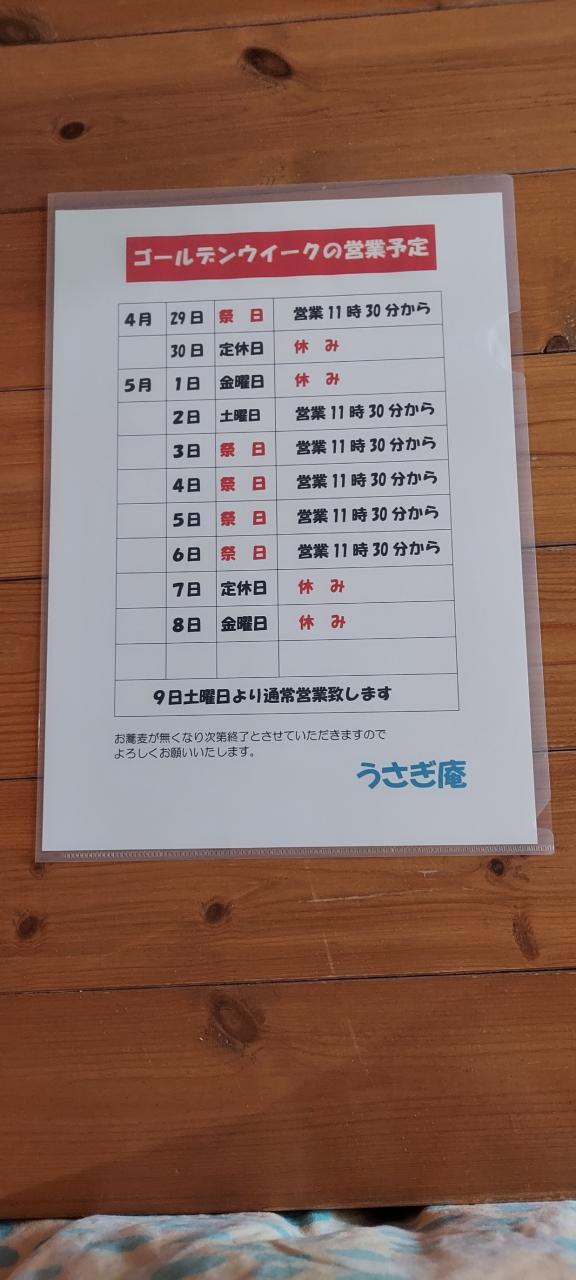 ゴールデンウイークの営業予定
4月 29日 祭 日 営業11時30分から
30日 定休日 休 み
5月 1日 金曜日 休 み
2日 土曜日 営業11時30分から
3日 祭 日 営業11時30分から
4日 祭 日 営業11時30分から
5日 祭 日 営業11時30分から
6日 祭 日 営業11時30分から
7日 定休日 休 み
8日 金曜日 休 み
9日土曜日より通常営業致します
お蕎麦が無くなり次第終了とさせていただきますので
よろしくお願いいたします。
うさぎ庵